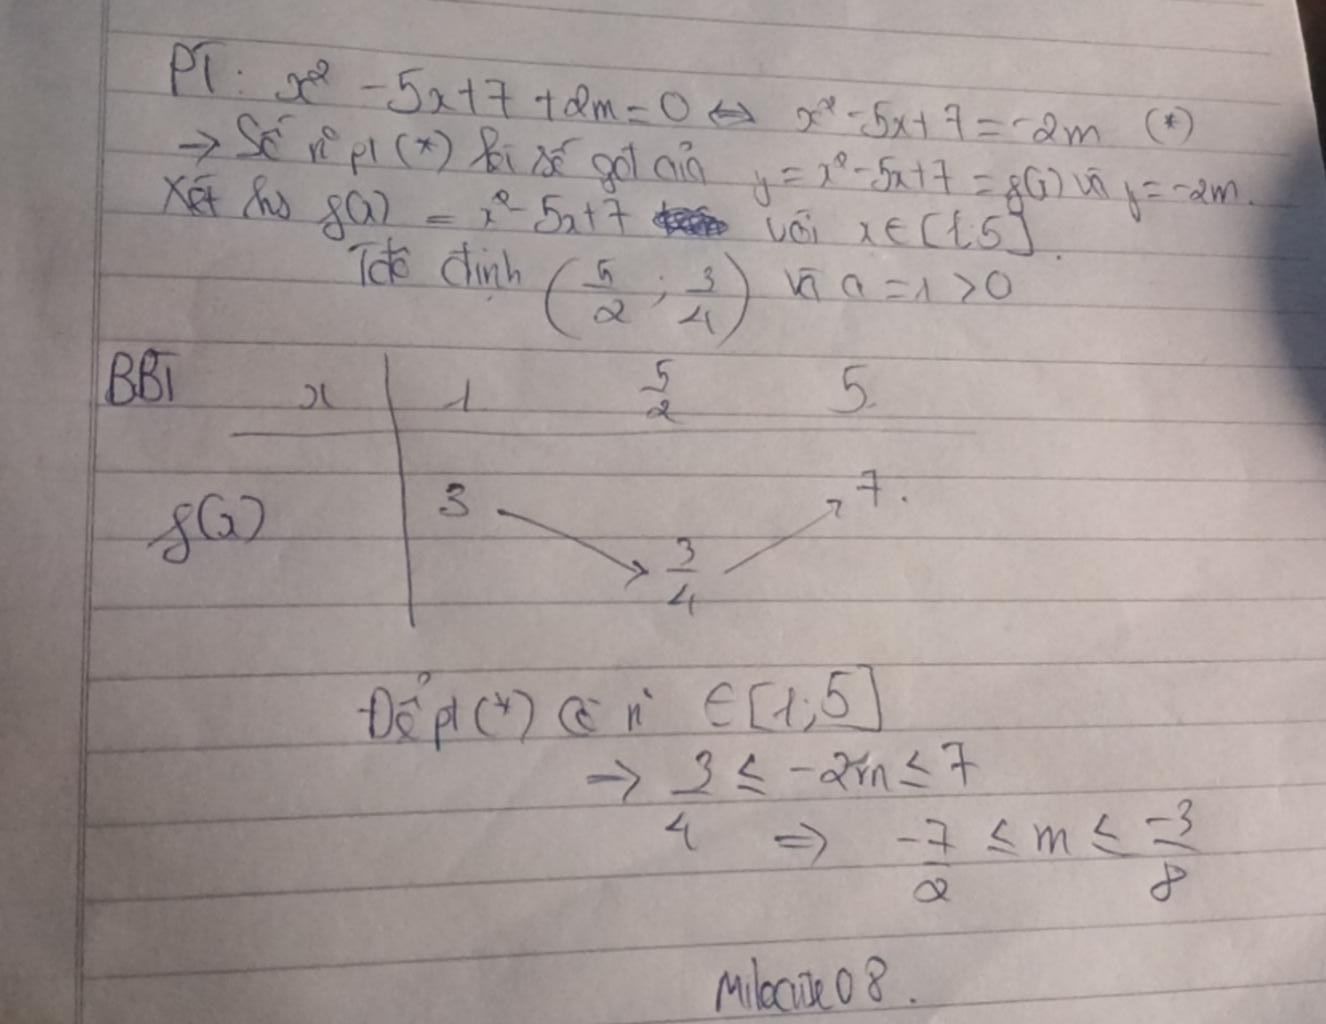 PT: x² - 5x + 7 + 2m = 0 ⇔ x² - 5x + 7 = -2m (*)
→ Số n° pt (*) số gđ của y = x² - 5x + 7 = f(x) và y = -2m.
Xét hs f(x) = x² - 5x + 7 với x ∈ [1;5].
Tđộ đỉnh (5/2 ; 3/4) và a = 1 > 0
BBT x 1 5/2 5
f(x) 3 3/4 7.
Để pt (*) có n° ∈ [1;5]
→ 3/4 ≤ -2m ≤ 7
⇒ -7/2 ≤ m ≤ -3/8